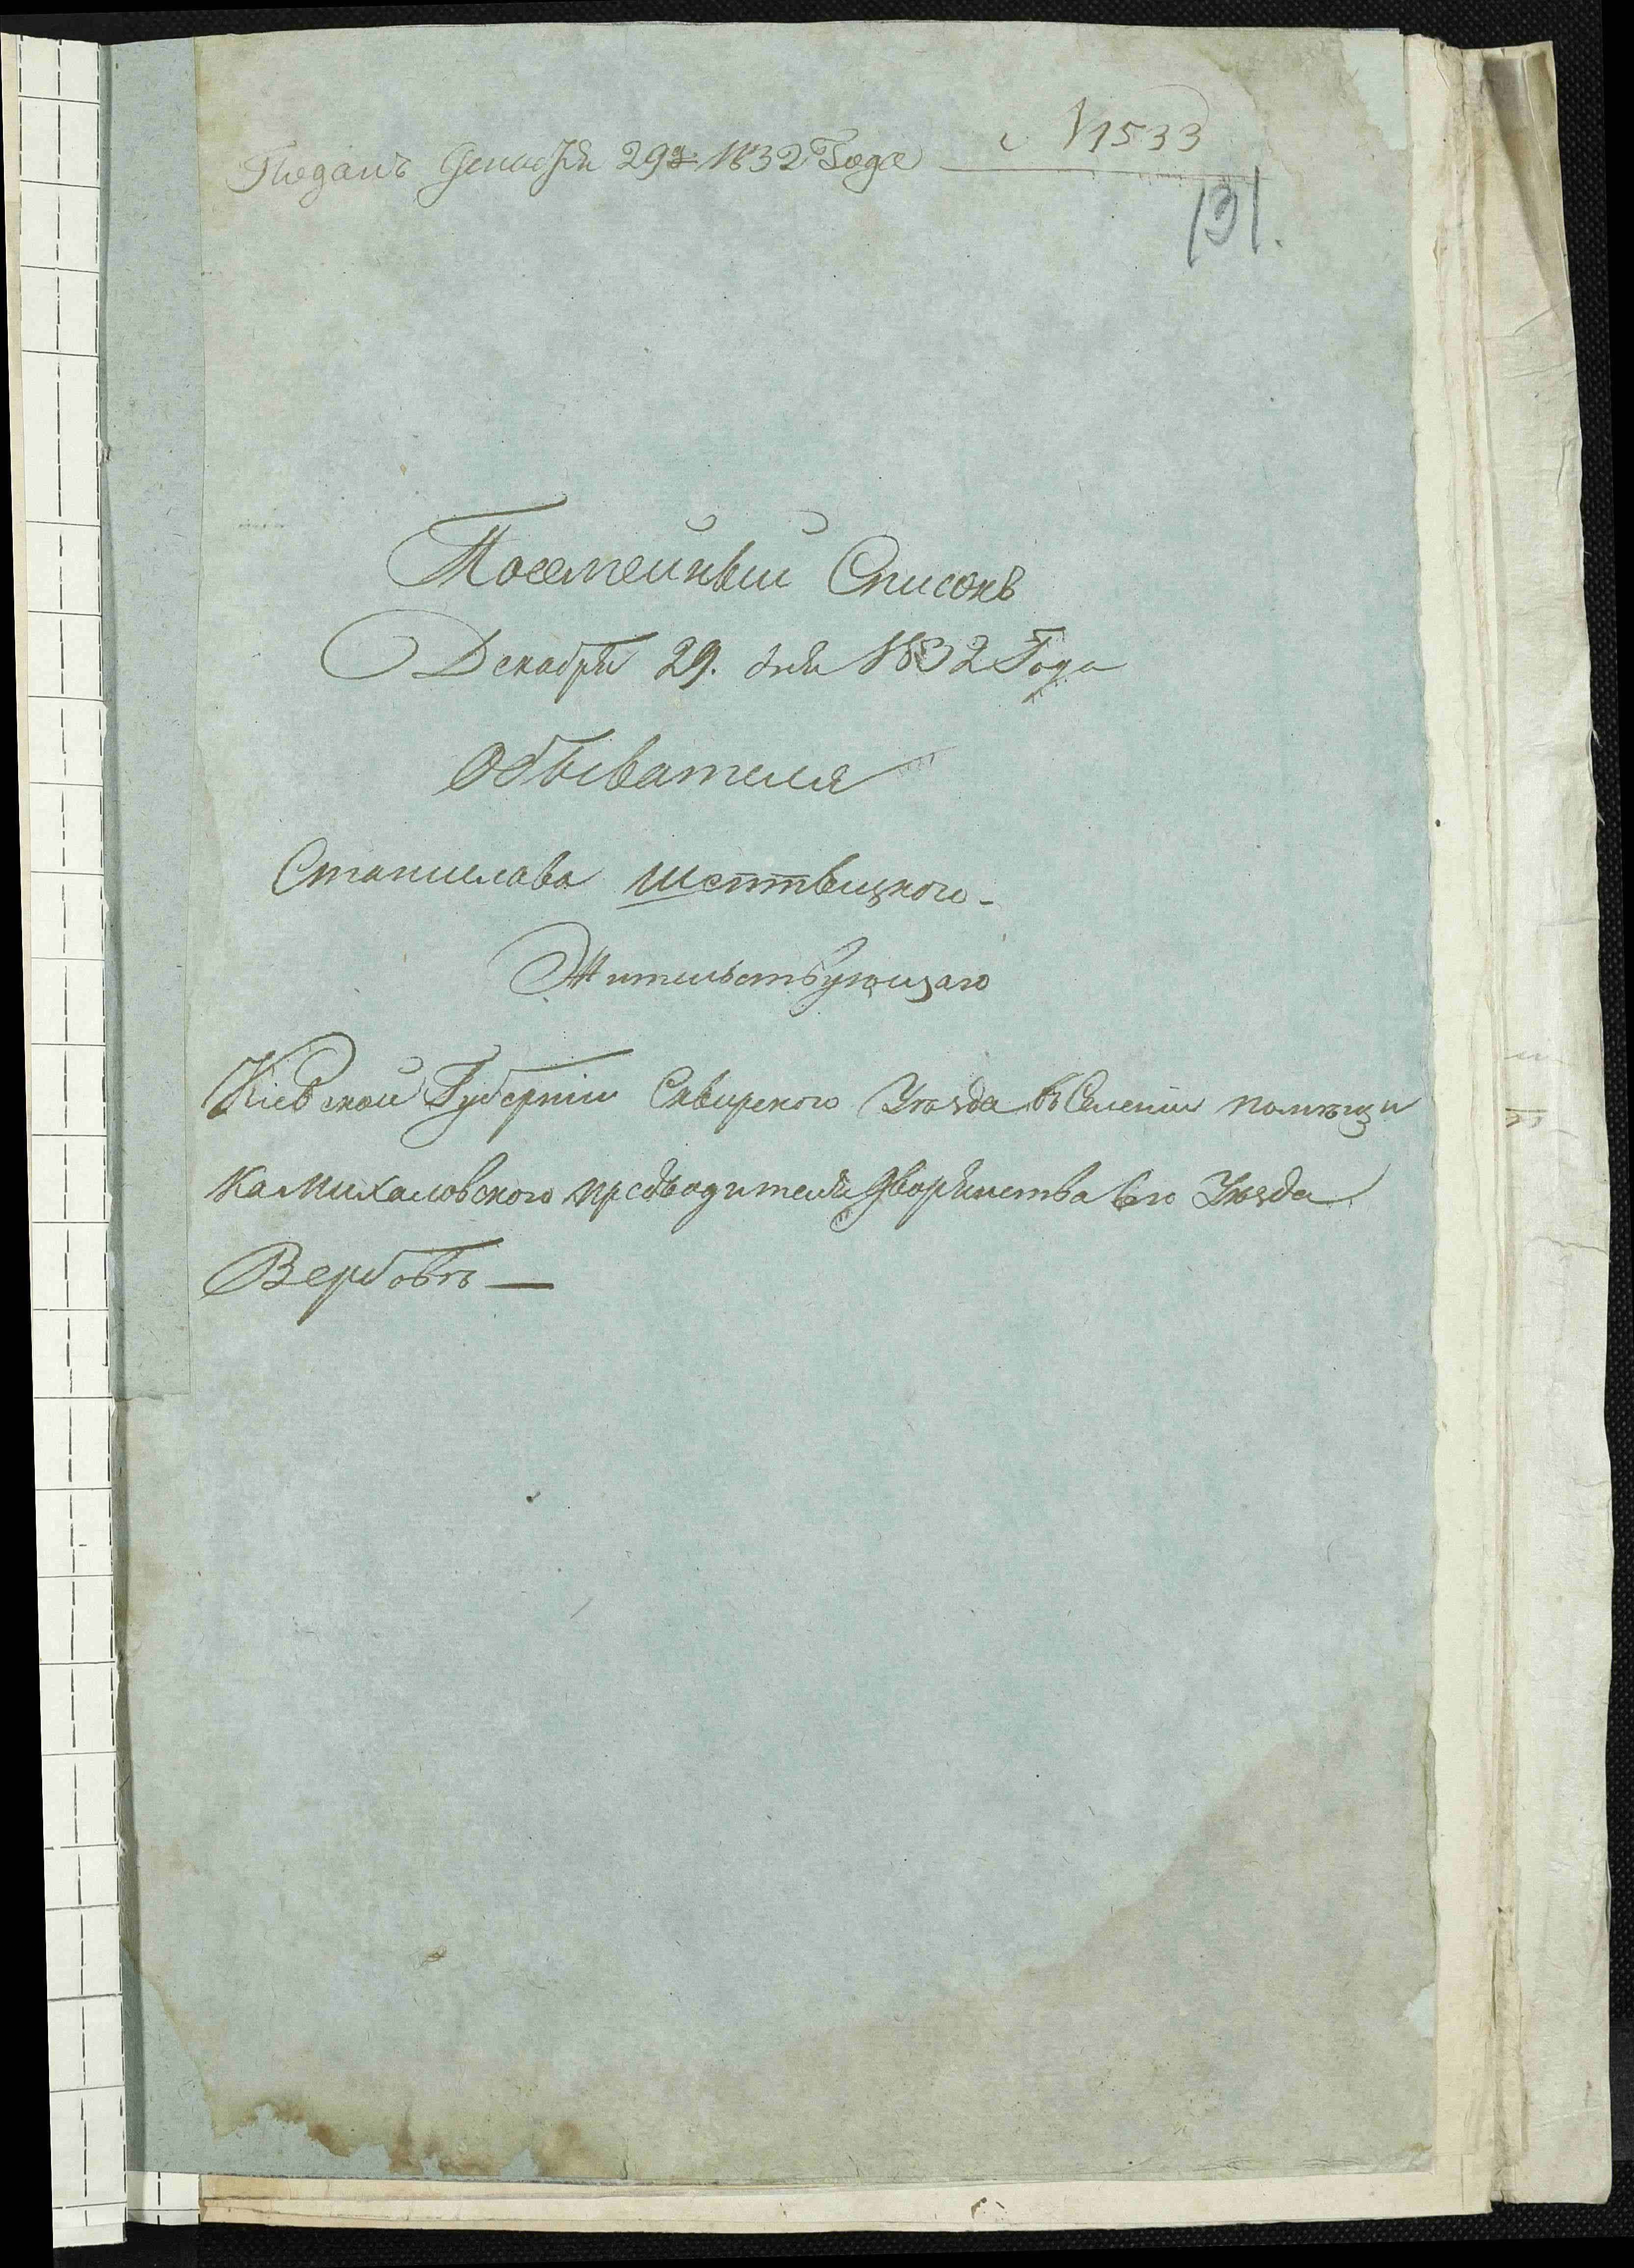 Поданъ Декабря 29 д. 1832 Года
№ 1533
131.
Посемейный Списокъ
Декабря 29. дня 1832 Года
Обывателя
Станислава Шептвицкого-
Жительствующаго
Кіевской Губерніи Сквирского Уѣзда въ Селеніи помѣщи
ка Михаловского предводителя дворянства его Уѣзда
Вербовъ —